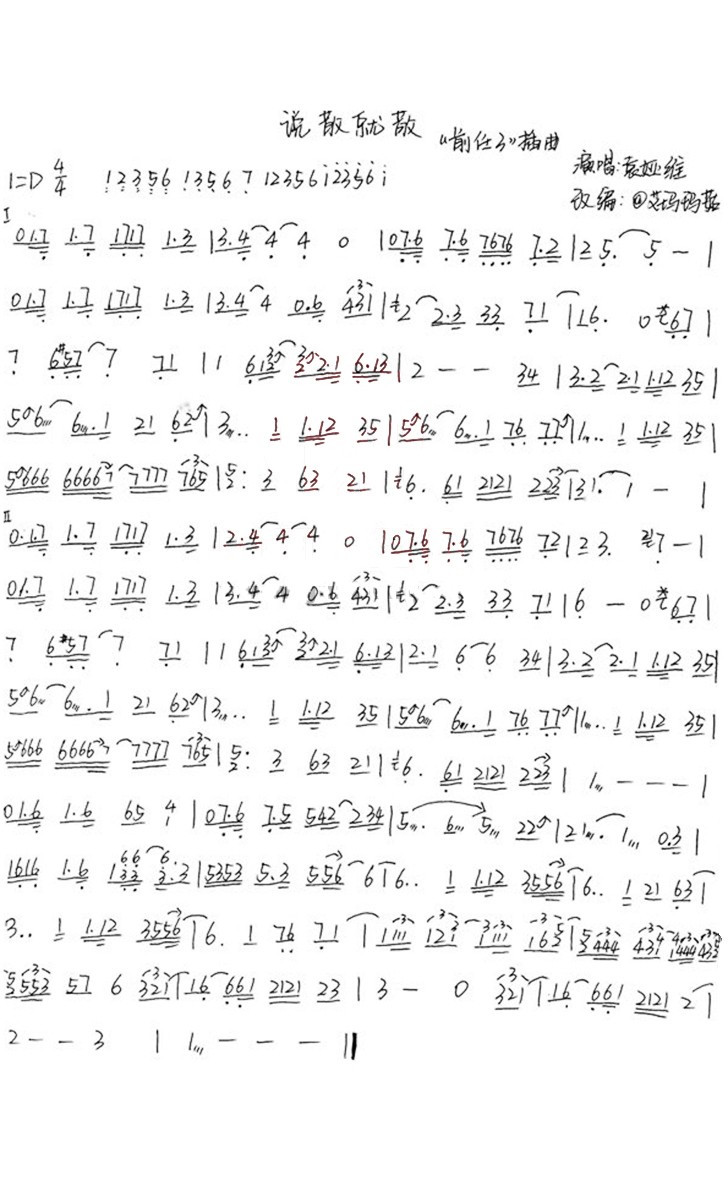 说散就散
“前任3”插曲
1=D 4/4 1 2 3 5 6 1 3 5 6 7 1 2 3 5 6 i 2 3 5 6 i
演唱:袁娅维
改编:@艾玛玛茹
I
01.7 1.7 1717 1.3 | 3.4 4 4 0 | 07.6 7.6 7676 7.2 | 2 5. 5 - |
01.7 1.7 1717 1.3 | 3.4 4 0.6 431 | 2 2.3 33 71 | 1.6. 0 #67 |
7 6#57 7 71 | 1 613 32.1 6.13 | 2 - - 34 | 3.2 2.1 1.12 35 |
5 6 6 .1 21 62 | 3 .. 1 1.12 35 | 5 6 6 .1 76 77 | 1 .. 1 1.12 35 |
5666 6666 7777 765 | 5/2: 3 63 21 | 6. 61 2121 223 | 31. 1 - |
II
0.1.7 1.7 1717 1.3 | 2.4 4 4 0 | 07.6 7.6 7676 72 | 2 3. 7 - |
01.7 1.7 1717 1.3 | 3.4 4 0.6 431 | 2 2.3 33 71 | 6 - 0 #67 |
7 6#57 7 71 | 1 6.13 32.1 6.13 | 2.1 6 6 34 | 3.2 2.1 1.12 35 |
5 6 6 .1 21 62 | 3 .. 1 1.12 35 | 5 6 6 .1 76 77 | 1 .. 1 1.12 35 |
5666 6666 7777 765 | 5/2: 3 63 21 | 6. 61 2121 223 | 1 - - - - |
01.6 1.6 65 4 | 07.6 7.5 542 234 | 5 . 6 5 22 | 21 . 1 0.3 |
1616 1.6 133 3.3 | 5353 5.3 556 6 | 6.. 1 1.12 3556 | 6.. 1 21 63 |
3.. 1 1.12 3556 | 6. 1 76 71 | 111 123 111 163 | 444 434 1444 435
553 57 6 321 | 16 661 2121 23 | 3 - 0 321 | 1.6 661 2121 2 |
2 - - 3 | 1 - - - ||